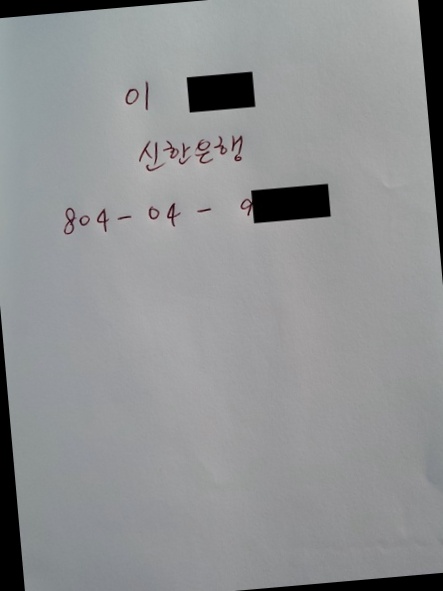 이
신한은행
804-04- 9